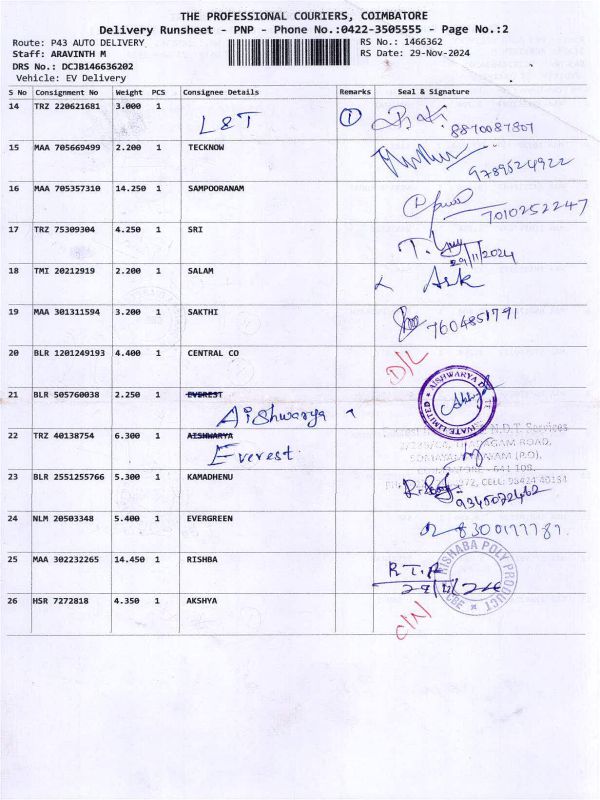 THE PROFESSIONAL COURIERS, COIMBATORE
Delivery Runsheet - PNP - Phone No.:0422-3505555 - Page No.:2
Route: P43 AUTO DELIVERY
RS No.: 1466362
Staff: ARAVINTH M
RS Date: 29-Nov-2024
DRS No.: DCJB146636202
Vehicle: EV Delivery
S No Consignment No Weight PCS Consignee Details Remarks Seal & Signature
14 TRZ 220621681 3.000 1 L&T 1
8870087307
15 MAA 705669499 2.200 1 TECKNOW
9789524922
16 MAA 705357310 14.250 1 SAMPOORANAM
7010252247
17 TRZ 75309304 4.250 1 SRI
29/11/2024
18 TMI 20212919 2.200 1 SALAM
Ask
19 MAA 301311594 3.200 1 SAKTHI
7604851791
20 BLR 1201249193 4.400 1 CENTRAL CO
D/L
21 BLR 505760038 2.250 1 EVEREST
Aishwarya
AISHWARYA
22 TRZ 40138754 6.300 1 AISHWARYA
Everest
N.D.T Services
ROAD,
(P.O).
641 108.
CELL: 98424 40134
23 BLR 2551255766 5.300 1 KAMADHENU
9345022462
24 NLM 20503348 5.400 1 EVERGREEN
8300177781
25 MAA 302232265 14.450 1 RISHBA
RISHABA POLY PRODUCT
CBE
26 HSR 7272818 4.350 1 AKSHYA
C/N